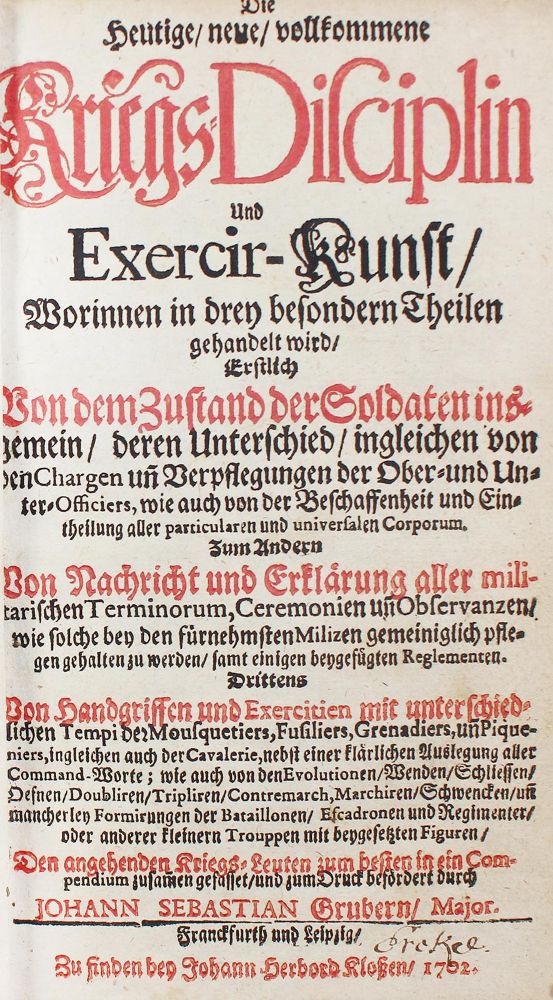 Die
Heutige/ neue/ vollkommene
Kriegs-Disciplin
Und
Exercir-Kunst/
Worinnen in drey besondern Theilen
gehandelt wird/
Erstlich
Von dem Zustand der Soldaten ins-
gemein/ deren Unterschied/ ingleichen von
den Chargen uñ Verpflegungen der Ober- und Un-
ter-Officiers, wie auch von der Beschaffenheit und Ein-
theilung aller particularen und universalen Corporum.
Zum Andern
Von Nachricht und Erklärung aller mili-
tarischen Terminorum, Ceremonien uñ Observanzen/
wie solche bey den fürnehmsten Milizen gemeiniglich pfle-
gen gehalten zu werden/ samt einigen beygefügten Reglementen.
Drittens
Von Handgriffen und Exercitien mit unterschied-
lichen Tempi der Mousquetiers, Fusiliers, Grenadiers, uñ Pique-
niers, ingleichen auch der Cavalerie, nebst einer klärlichen Auslegung aller
Command-Worte; wie auch von den Evolutionen/ Wenden/ Schliessen/
Oefnen/ Doubliren/ Tripliren/ Contremarch, Marchiren/ Schwencken/ uñ
mancherley Formirungen der Bataillonen/ Escadronen und Regimenter/
oder anderer kleinern Trouppen mit beygesetzten Figuren/
Den angehenden Kriegs-Leuten zum besten in ein Com-
pendium zusam̃en gefasset/ und zum Druck befördert durch
JOHANN SEBASTIAN Grubern/ Major.
Franckfurth und Leipzig/
Zu finden bey Johann Herbord Kloßen/ 1702.